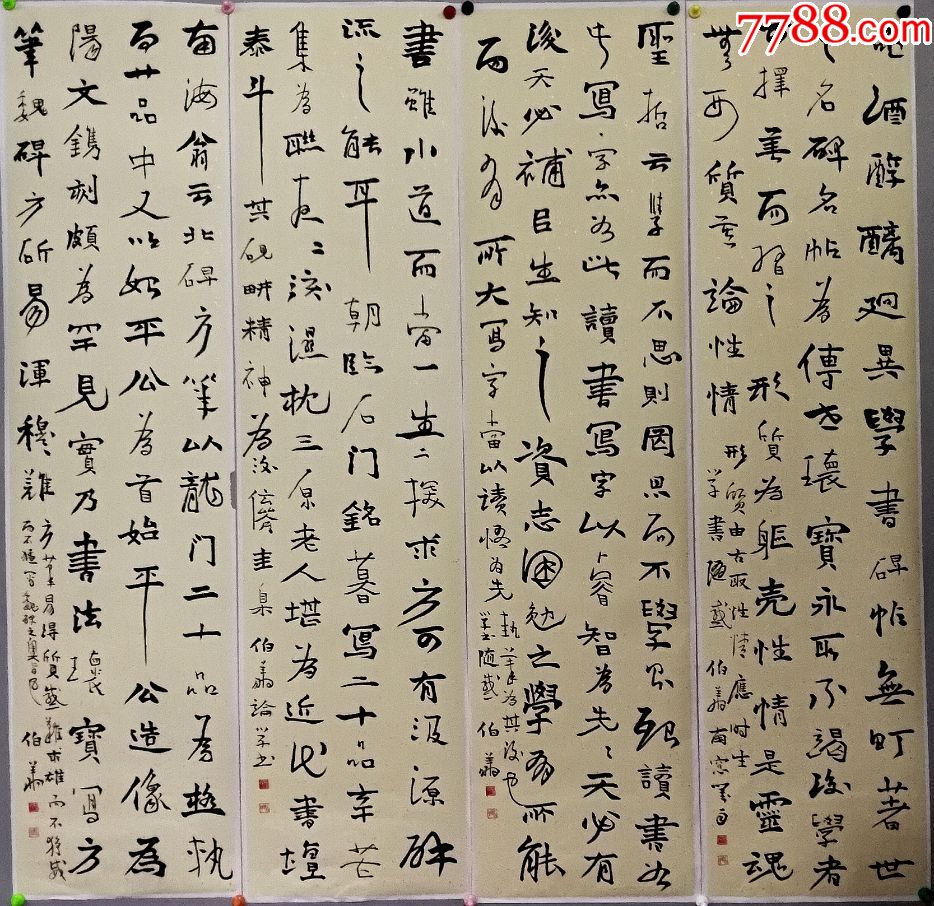 7788.com
酒醇醨迥異學書碑帖無町著世
名碑名帖為傳世瓌寶永聖而不竭後學者
擇善而習之形質為軀壳性情是靈魂
質無論性情
形質由古取性情應時生
學書隨感伯翥南窓
聖哲云學而不思則罔思而不學則殆讀書如
此寫字亦如此讀書寫字以睿智為先先天必有
後天必補臣生知之資志困勉之學有所能
而後有所大寫字當以讀悟為先
執筆為其後也
學書隨感伯翥
書雖小道而當一生二探求方可有汲源
流之能耳朝臨石门銘暮寫二十品辛苦
集為聯夜二淚濕枕三原老人堪為近代書壇
泰斗其硯畊精神為後學圭臬伯翥論學書
南海翁云北碑方筆以龍门二十品為極執
而廿品中又以始平公為首始平公造像為
陽文鐫刻頗為罕見實乃書法瓌寶寫方
筆魏碑方斫易渾穆難
方筆易得質感難求雄而不獷威
伯翥